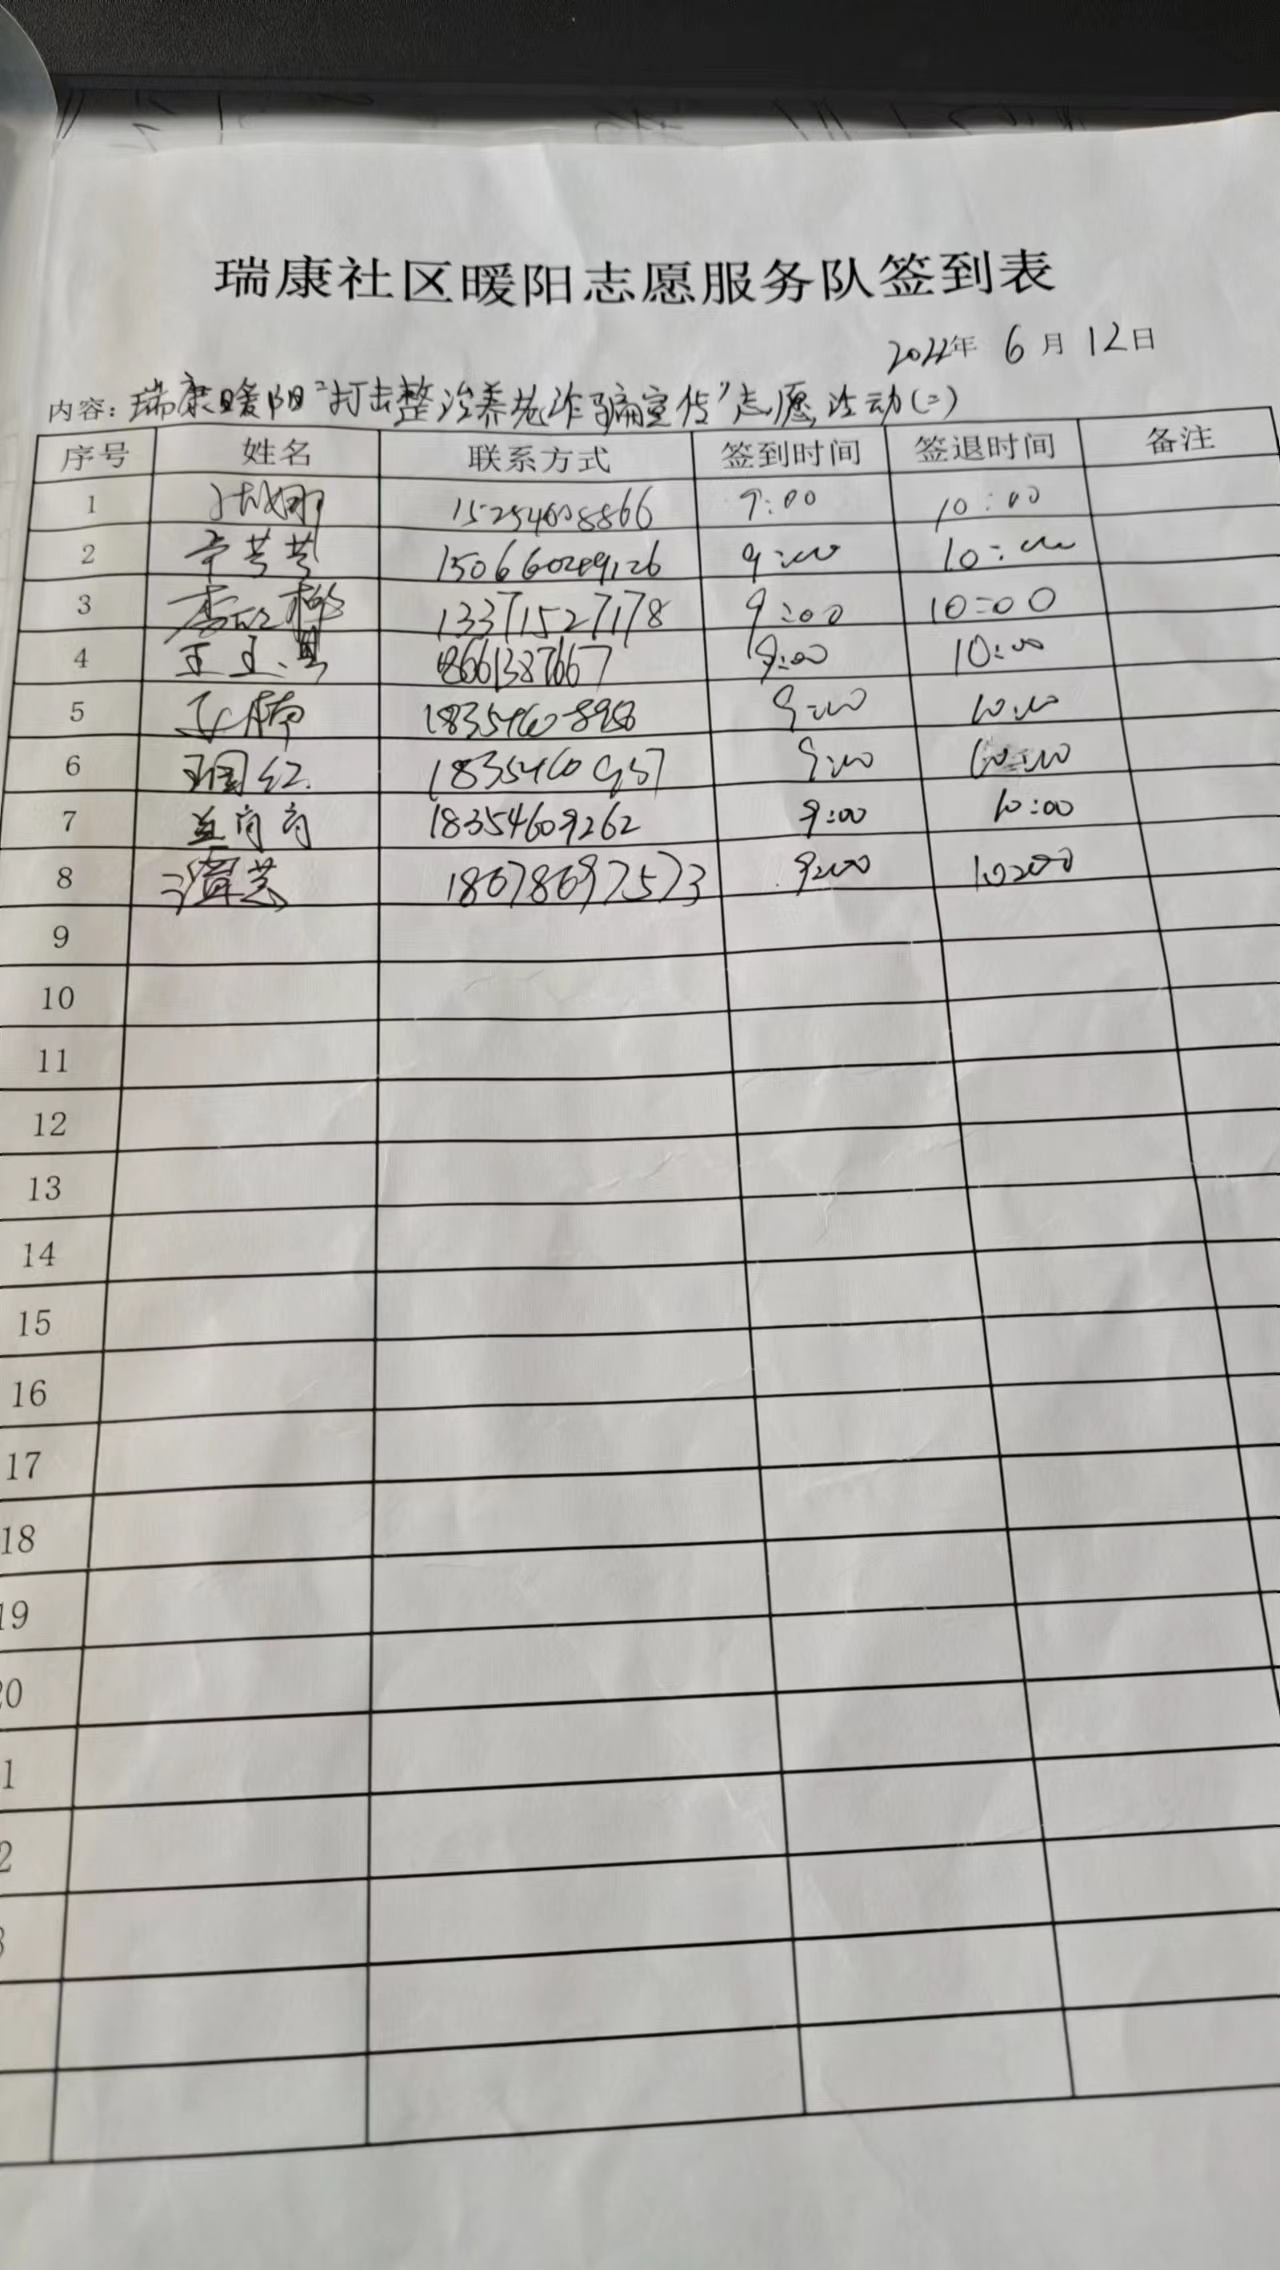 瑞康社区暖阳志愿服务队签到表
2022年 6月12日
内容：瑞康暖阳“打击整治养老诈骗宣传”志愿活动(二)
序号 姓名 联系方式 签到时间 签退时间 备注
1 15254608866 9:00 10:00
2 辛芸芸 9:00 10:00
3 13371527178 9:00 10:00
4 18661387667 9:00 10:00
5 18354608958 9:00 10:00
6 王国红 9:00 10:00
7 18354609262 9:00 10:00
8 谭芸 18678697573 9:00 10:00
9
10
11
12
13
14
15
16
17
18
19
20
1
2
3